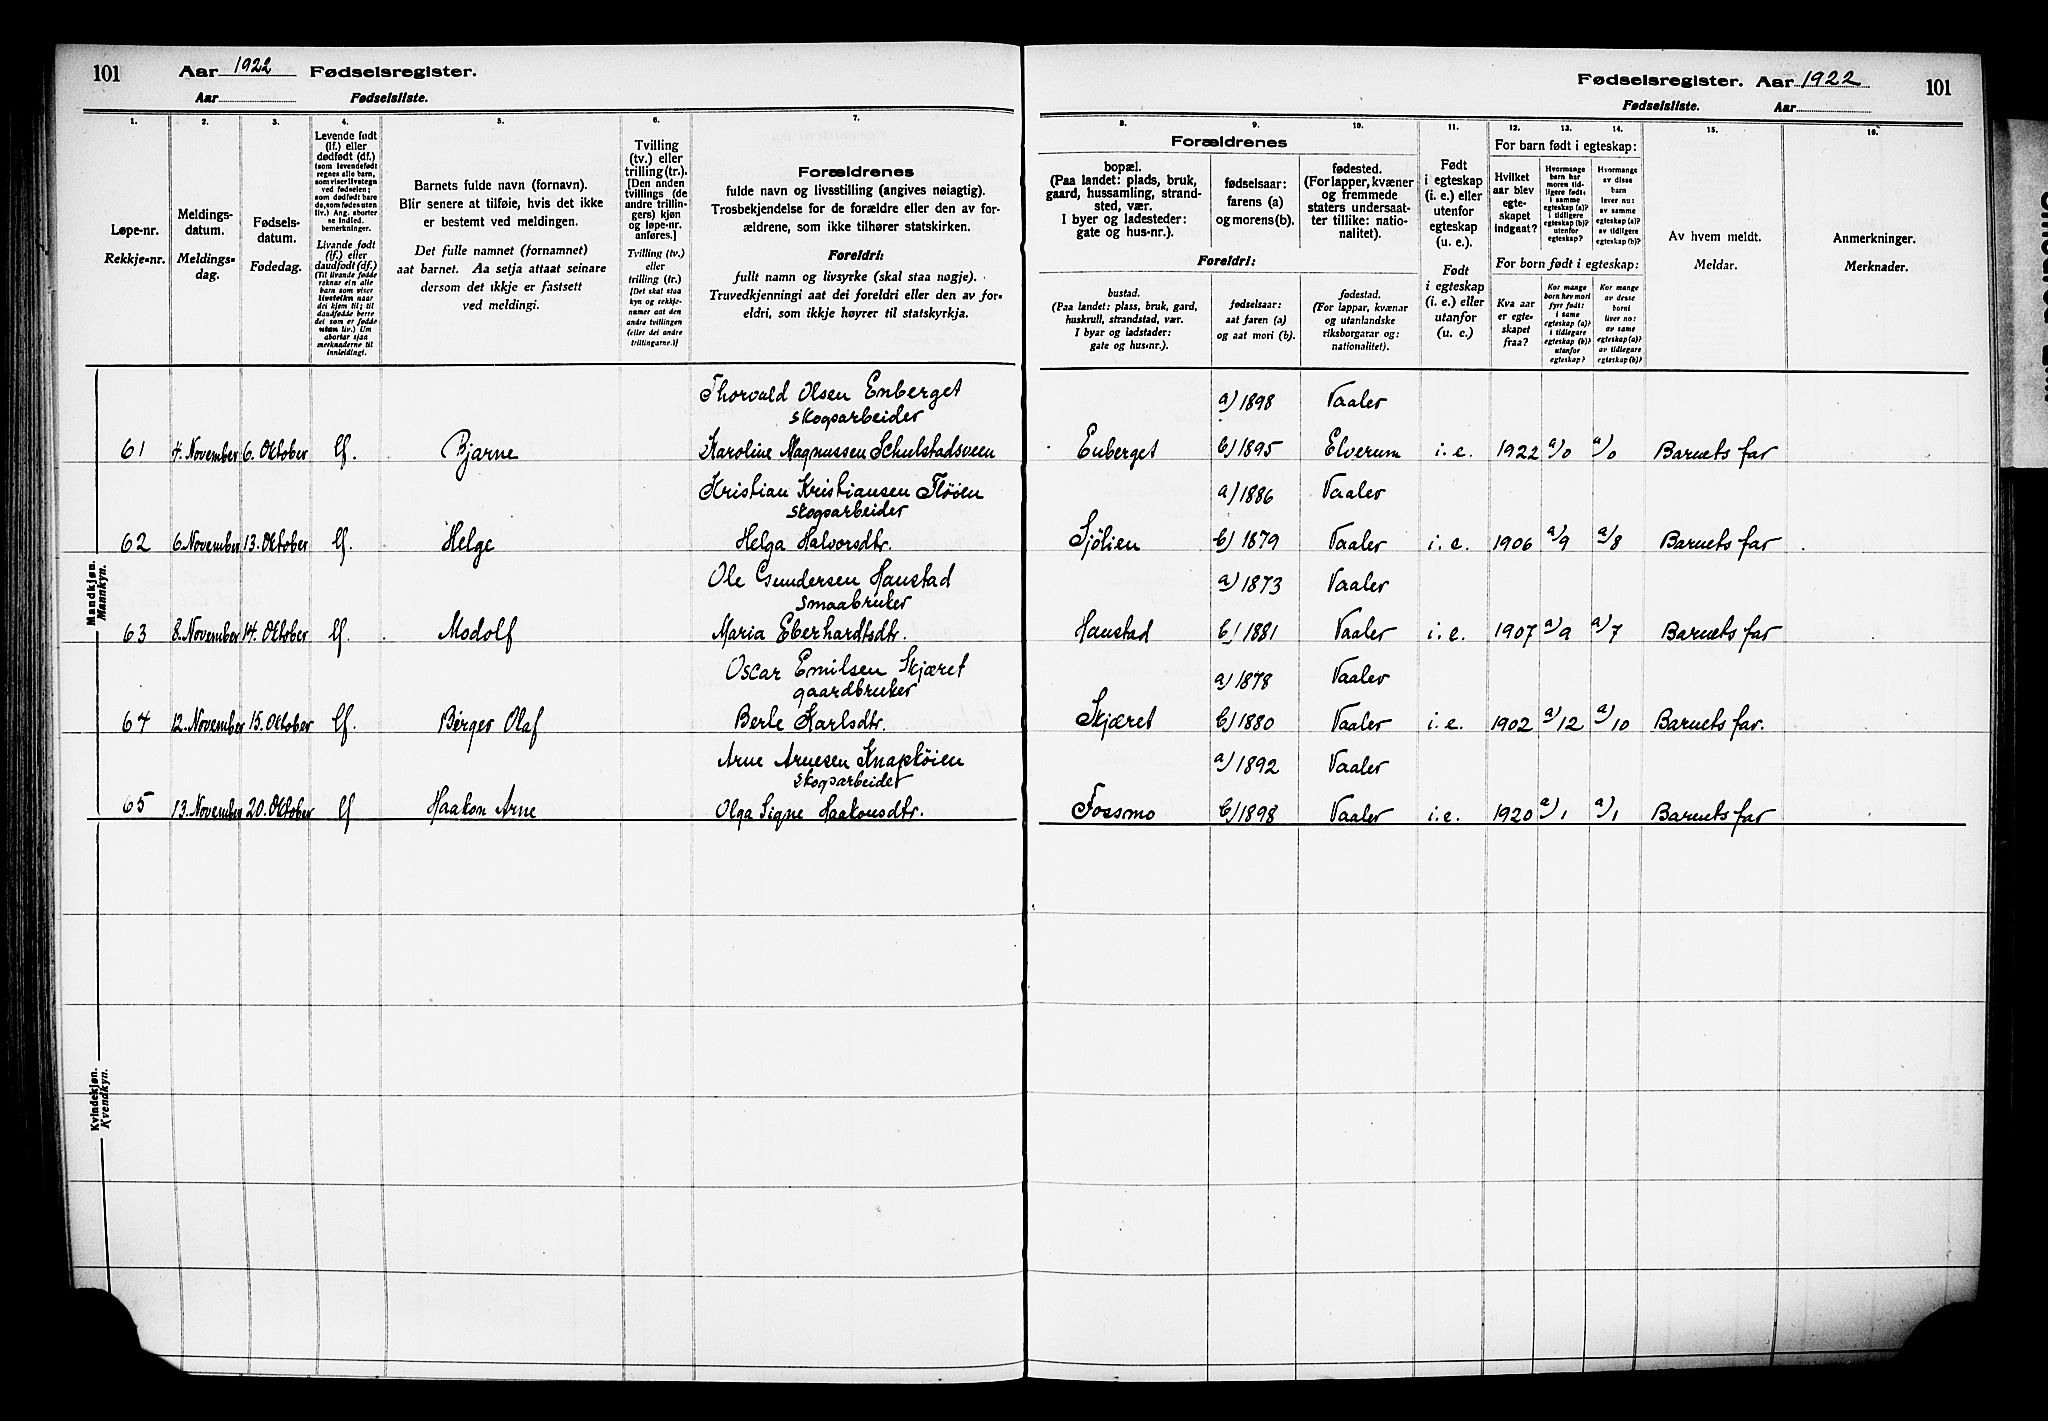 101 Aar 1922 Fødselsregister.
Aar Fødselsliste.
Fødselsregister. Aar 1922 101
Fødselsliste. Aar
1. 2. 3. 4. 5. 6. 7.
Løpe-nr.
Rekkje-nr.
Meldings-
datum.
Meldings-
dag.
Fødsels-
datum.
Fødedag.
Levende født
(lf.) eller
dødfødt (df.)
(som levendefødt
regnes alle barn,
som viser livstegn
ved fødselen;
som dødfødt bare
de, som fødes uten
liv.) Ang. aborter
se indled.
bemerkninger.
Livande født
(lf.) eller
daudfødt (df.)
(Til livande fødde
reknar ein alle
barn som viser
livsteikn naar
dei kjem til; til
daudfødde berre
dei som er fødde
utan liv.) Um
abortar sjaa
merknaderne til
innleidingi.
Barnets fulde navn (fornavn).
Blir senere at tilføie, hvis det ikke
er bestemt ved meldingen.
Det fulle namnet (fornamnet)
aat barnet. Aa setja attaat seinare
dersom det ikkje er fastsett
ved meldingi.
Tvilling
(tv.) eller
trilling (tr.).
[Den anden
tvillings (de
andre trillin-
gers) kjøn
og løpe-nr.
anføres.]
Tvilling (tv.)
eller
trilling (tr.)
[Det skal staa
kyn og rekkje-
numer aat den
andre tvillingen
(eller dei andre
trillingarne.)]
Forældrenes
fulde navn og livsstilling (angives nøiagtig).
Trosbekjendelse for de forældre eller den av for-
ældrene, som ikke tilhører statskirken.
Foreldri:
fullt namn og livsyrke (skal staa nøgje).
Truvedkjenningi aat dei foreldri eller den av for-
eldri, som ikkje høyrer til statskyrkja.
8. 9. 10. 11. 12. 13. 14. 15. 16.
Forældrenes
bopæl.
(Paa landet: plads, bruk,
gaard, hussamling, strand-
sted, vær.
I byer og ladesteder:
gate og hus-nr.).
fødselsaar:
farens (a)
og morens (b).
fødested.
(For lapper, kvæner
og fremmede
staters undersaat-
ter tillike: natio-
nalitet).
Foreldri:
bustad.
(Paa landet: plass, bruk, gard,
huskrull, strandstad, vær.
I byar og ladstader:
gate og hus-nr.).
fødselsaar:
aat faren (a)
og aat mori (b).
fødestad.
(For lappar, kvænar
og utanlandske
riksborgarar og:
nationalitet).
Født
i egteskap
(i. e.) eller
utenfor
egteskap
(u. e.).
Født
i egteskap
(i. e.) eller
utanfor
(u. e.)
For barn født i egteskap:
Hvilket
aar blev
egte-
skapet
indgaat?
Hvormange
barn har
moren tid-
ligere født:
i samme
egteskap (a)?
i tidligere
egteskap (b)?
utenfor
egteskap?
Hvormange
av disse
barn
lever nu:
av samme
egteskap (a)?
av tidligere
egteskap (b)?
For born født i egteskap:
Kva aar
er egte-
skapet
fraa?
Kor mange
born hev mori
fyrr født:
i same
egteskap (a)?
i tidlegare
egteskap (b)?
utanfor
egteskap?
Kor mange
av desse
borni
liver no:
av same
egteskap (a)?
av tidlegare
egteskap (b)?
Av hvem meldt.
Meldar.
Anmerkninger.
Merknader.
Mandkjøn.
Mannkyn.
Thorvald Olsen Enberget a) 1898 Vaaler
skogsarbeider
61 4. November 6. Oktober lf. Bjarne Karoline Magnussen Schulstadsveen Enberget b) 1895 Elverum i. e. 1922 a/0 a/0 Barnets far
Kristian Kristiansen Fløien a) 1886 Vaaler
skogsarbeider
62 6. November 13. Oktober lf. Helge Helga Halvorsdtr. Sjølien b) 1879 Vaaler i. e. 1906 a/9 a/8 Barnets far
Ole Gundersen Haustad a) 1873 Vaaler
smaabruker
63 8. November 14. Oktober lf. Modolf Maria Eberhardtsdtr. Haustad b) 1881 Vaaler i. e. 1907 a/9 a/7 Barnets far
Oscar Emilsen Skjæret a) 1878 Vaaler
gaardbruker
64 12. November 15. Oktober lf. Birger Olaf Berle Karlsdtr. Skjæret b) 1880 Vaaler i. e. 1902 a/12 a/10 Barnets far.
Arne Arnesen Knapkøien a) 1892 Vaaler
skogsarbeider
65 13. November 20. Oktober lf Haakon Arne Olga Signe Haakonsdtr. Fossmo b) 1898 Vaaler i. e. 1920 a/1 a/1 Barnets far
Kvindekjøn.
Kvendkyn.